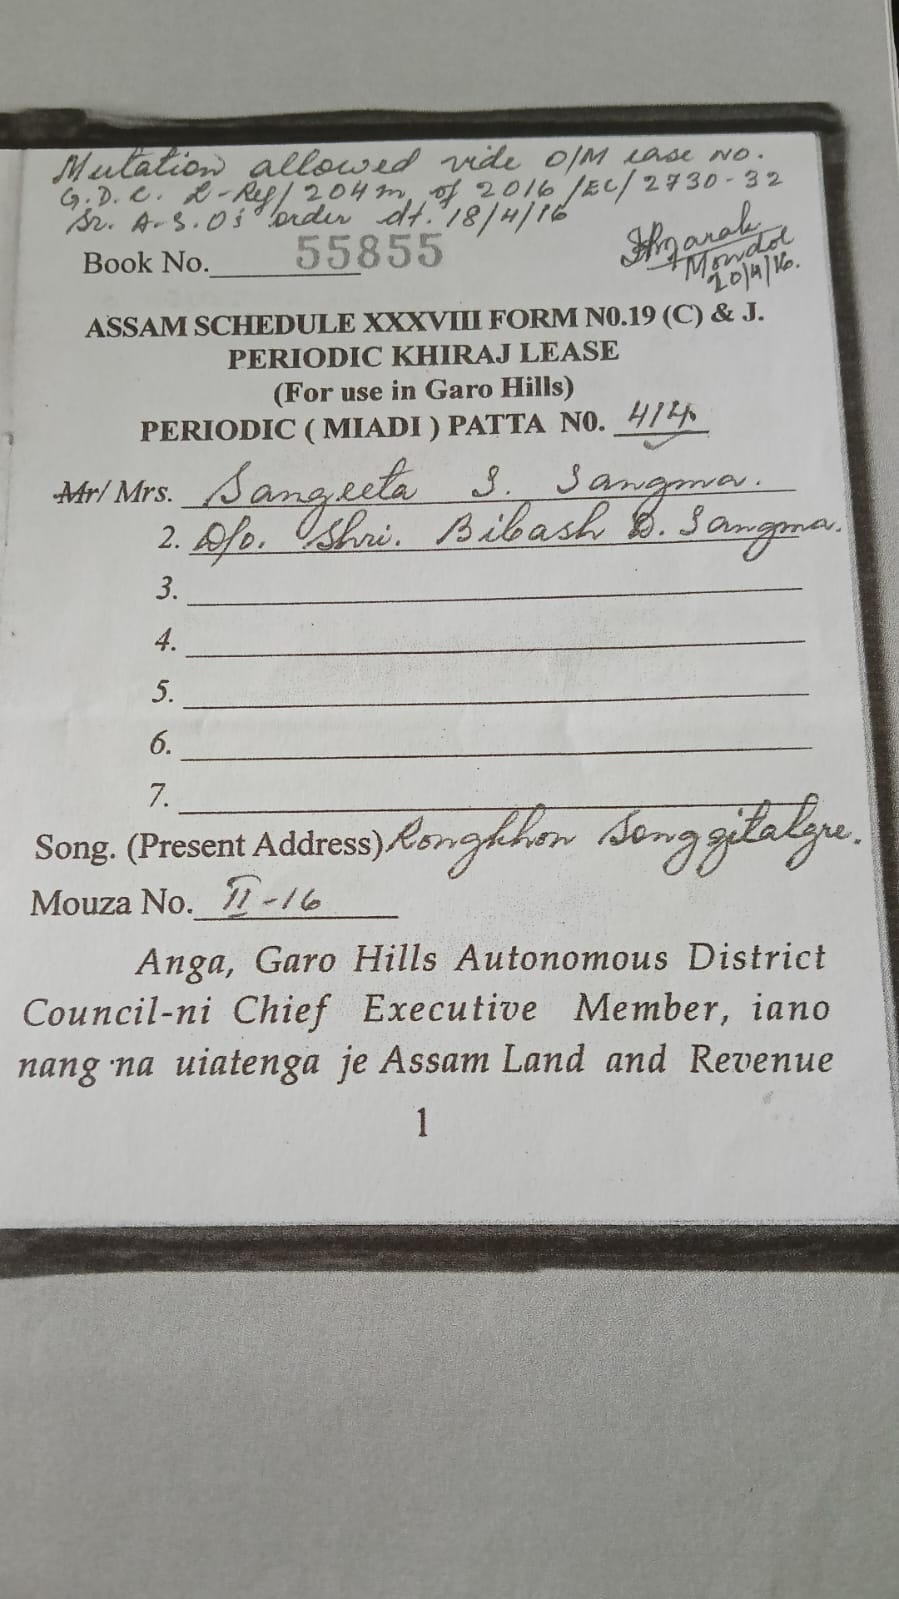 Mutation allowed vide O/M case no.
G.D.C. L-Reg/204m of 2016/EC/2730-32
Sr. A.S.O's order dt. 18/4/16
Book No. 55855
Mondol
20/4/16.
ASSAM SCHEDULE XXXVIII FORM N0.19 (C) & J.
PERIODIC KHIRAJ LEASE
(For use in Garo Hills)
PERIODIC ( MIADI ) PATTA N0. 414
Mr/ Mrs. Sangeeta S. Sangma.
2. D/o. Shri. Bibash D. Sangma.
3.
4.
5.
6.
7.
Song. (Present Address) Rongkhon Songgitalgre.
Mouza No. II-16
Anga, Garo Hills Autonomous District
Council-ni Chief Executive Member, iano
nang·na uiatenga je Assam Land and Revenue
1